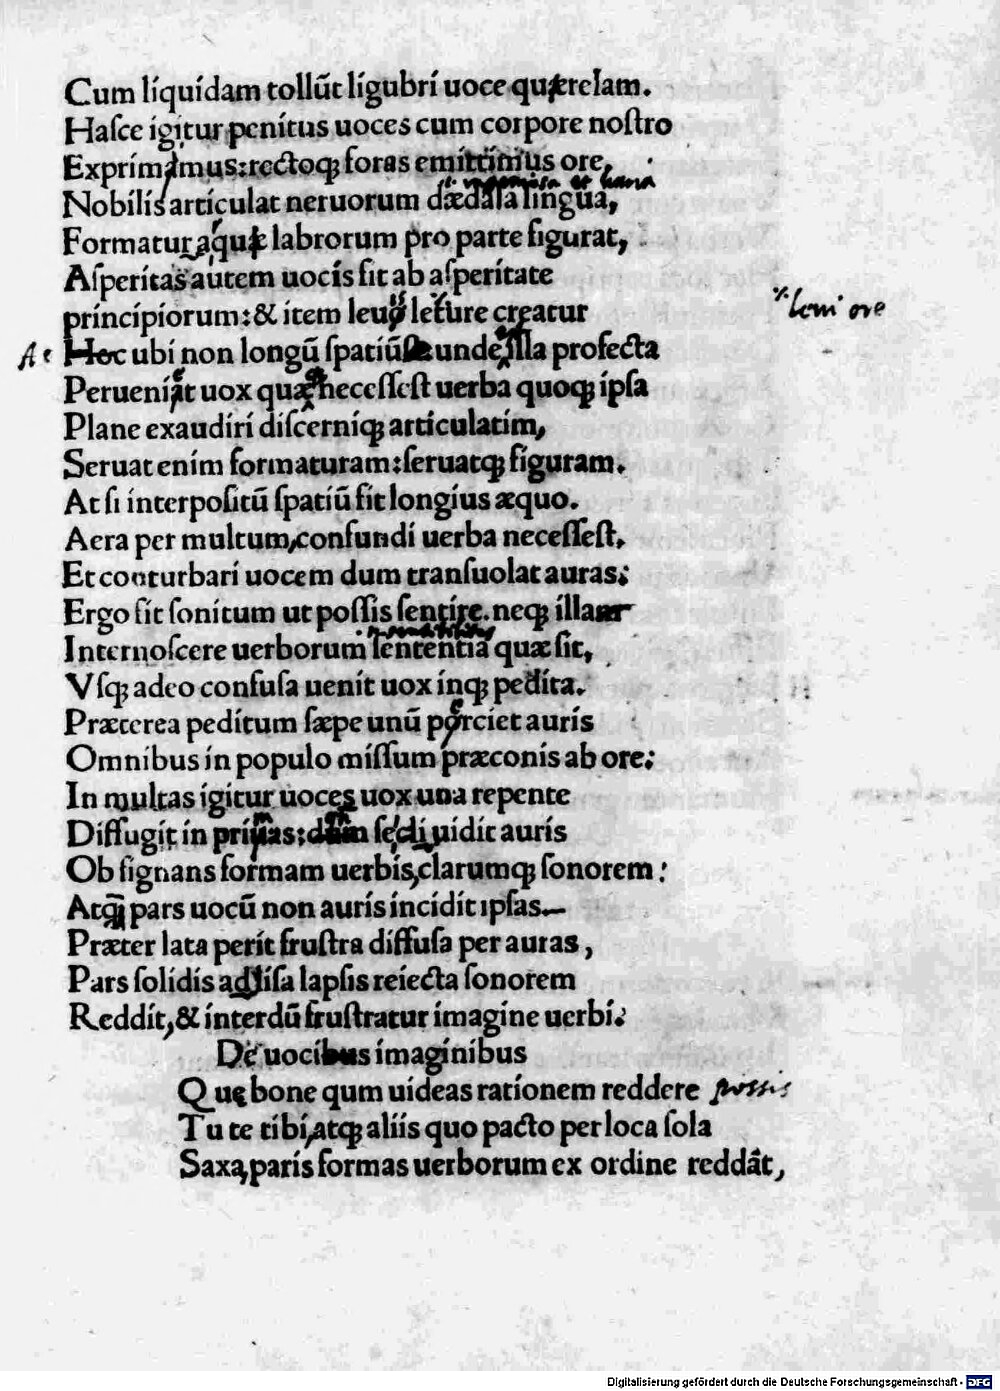 Cum liquidam tollūt ligubri uoce querelam.
Haſce igitur penitus uoces cum corpore noſtro
Exprimimus: rectoq; foras emittimus ore,
Nobilis articulat neruorum dædala lingua,
Formatura quæ labrorum pro parte figurat,
Aſperitas autem uocis fit ab aſperitate
principiorum: & item leuor leuore creatur
leni ore
Ac
Hoc ubi non longū ſpatiū unde illa profecta
Perueniat uox quæ neceſſeſt uerba quoq; ipſa
Plane exaudiri diſcerniq; articulatim,
Seruat enim formaturam: ſeruatq; figuram.
At ſi interpoſitū ſpatiū ſit longius æquo.
Aera per multum, confundi uerba neceſſeſt,
Et conturbari uocem dum tranſuolat auras:
Ergo fit ſonitum ut poſſis ſentire. neq; illam
Internoſcere uerborum ſententia quæ ſit,
Vſq; adeo confuſa uenit uox inq; pedita.
Præterea peditum ſæpe unū porciet auris
Omnibus in populo miſſum præconis ab ore:
In multas igitur uoces uox una repente
Diffugit in primas: dum ſe diuidit auris
Ob ſignans formam uerbis, clarumq; ſonorem:
Atq; pars uocū non auris incidit ipſas
Præter lata perit fruſtra diffuſa per auras,
Pars ſolidis adliſa lapſis reiecta ſonorem
Reddit, & interdū fruſtratur imagine uerbi.
De uocibus imaginibus
Quę bone qum uideas rationem reddere possis
Tu te tibi, atq; aliis quo pacto per loca ſola
Saxa, paris formas uerborum ex ordine reddāt,
Digitalisierung gefördert durch die Deutsche Forschungsgemeinschaft - DFG